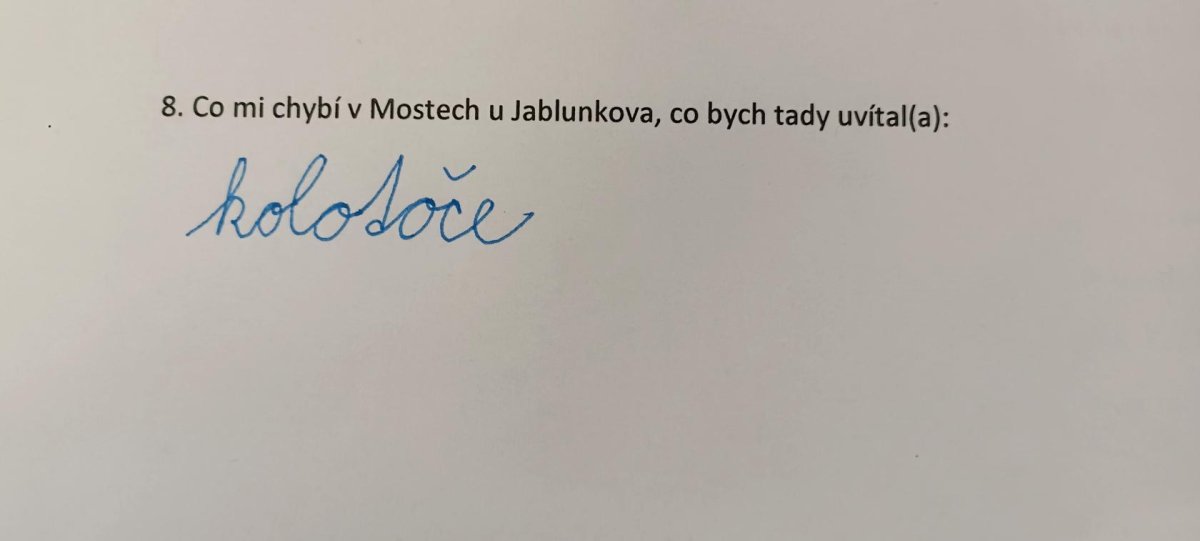 8. Co mi chybí v Mostech u Jablunkova, co bych tady uvítal(a):
kolotoče